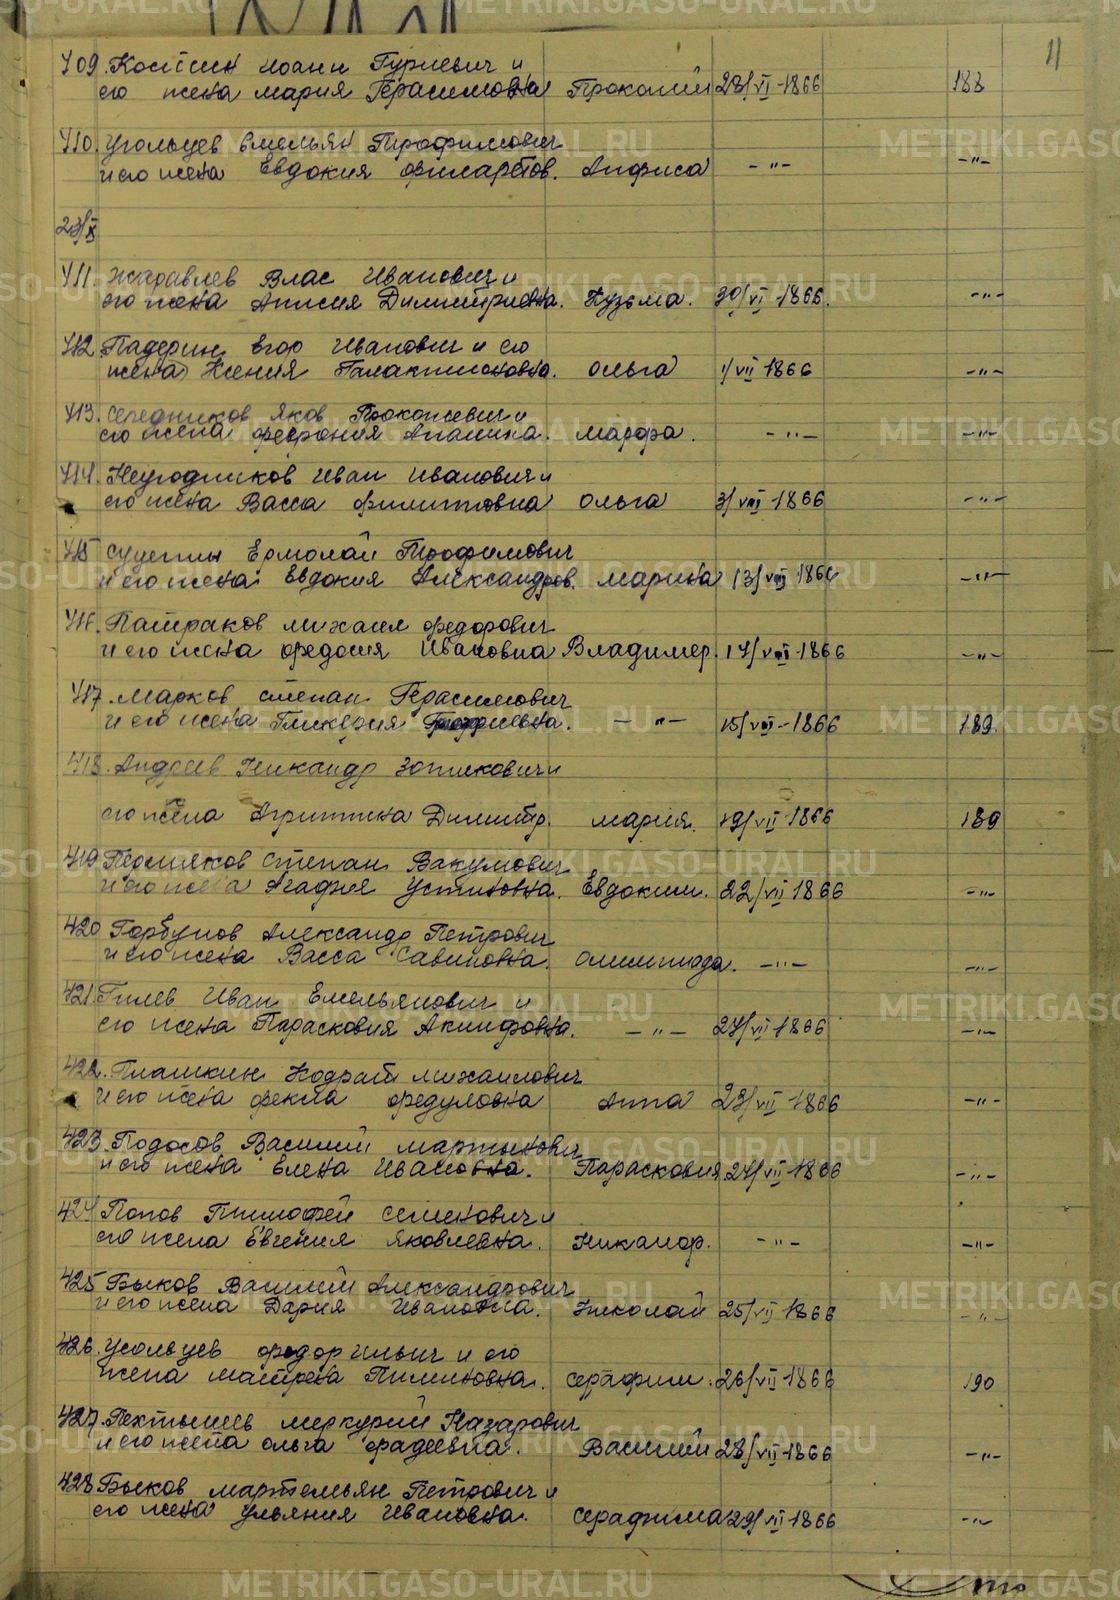 11
409. Костин Иоанн Гуриевич и
его жена Мария Герасимовна Прокопий 28/VI-1866 188
410. Усольцев Емельян Трофимович
и его жена Евдокия Филаретов. Анфиса -"- -"-
23/X
411. Журавлев Влас Иванович и
его жена Анисия Димитриевна. Кузьма. 30/VI-1866. -"-
412. Падерин Егор Иванович и его
жена Ксения Галактионовна. Ольга 1/VII 1866 -"-
413. Середников Яков Прокопьевич и
его жена Феврония Ананина. Марфа. -"- -"-
414. Неугодников Иван Иванович и
его жена Васса Филипповна Ольга 3/VII 1866 -"-
415 Ермолай Трофимович
и его жена Евдокия Александров. Марина 13/VII 1866 -"-
416. Патраков Михаил Федорович
и его жена Федосия Ивановна Владимер. 14/VII-1866 -"-
417. Марков Степан Герасимович
и его жена Гликерия -"- 15/VII-1866 189.
418. Андреев Никандр Зотикович и
его жена Агриппина Димитр. Мария. 19/VII-1866 189
419 Степан Вакумович
и его жена Агафия Устиновна. Евдоким. 22/VII 1866 -"-
420 Горбунов Александр Петрович
и его жена Васса Савиновна. Олимпиада. -"- -"-
421. Гилев Иван Емельянович и
его жена Парасковия Акинфовна. -"- 24/VII 1866 -"-
422. Плашкин Кодрат Михаилович
и его жена Фекла Федуловна Анна 23/VII 1866 -"-
423. Подосов Василий Мартынович
и его жена Елена Ивановна. Парасковия 24/VII-1866 -"-
424 Попов Тимофей Семенович и
его жена Евгения Яковлевна. Никанор. -"- -"-
425 Быков Василий Александрович
и его жена Дария Ивановна. Николай 25/VII 1866 -"-
426. Усольцев Федор Ильич и его
жена Матрена Пименовна. Серафим. 26/VII 1866 190
427. Пехтышев Меркурий Назарович
и его жена Ольга Фадеевна. Василий 28/VII-1866 -"-
428 Быков Мартемьян Петрович и
его жена Ульяния Ивановна. Серафима 29/VII-1866 -"-
METRIKI.GASO-URAL.RU